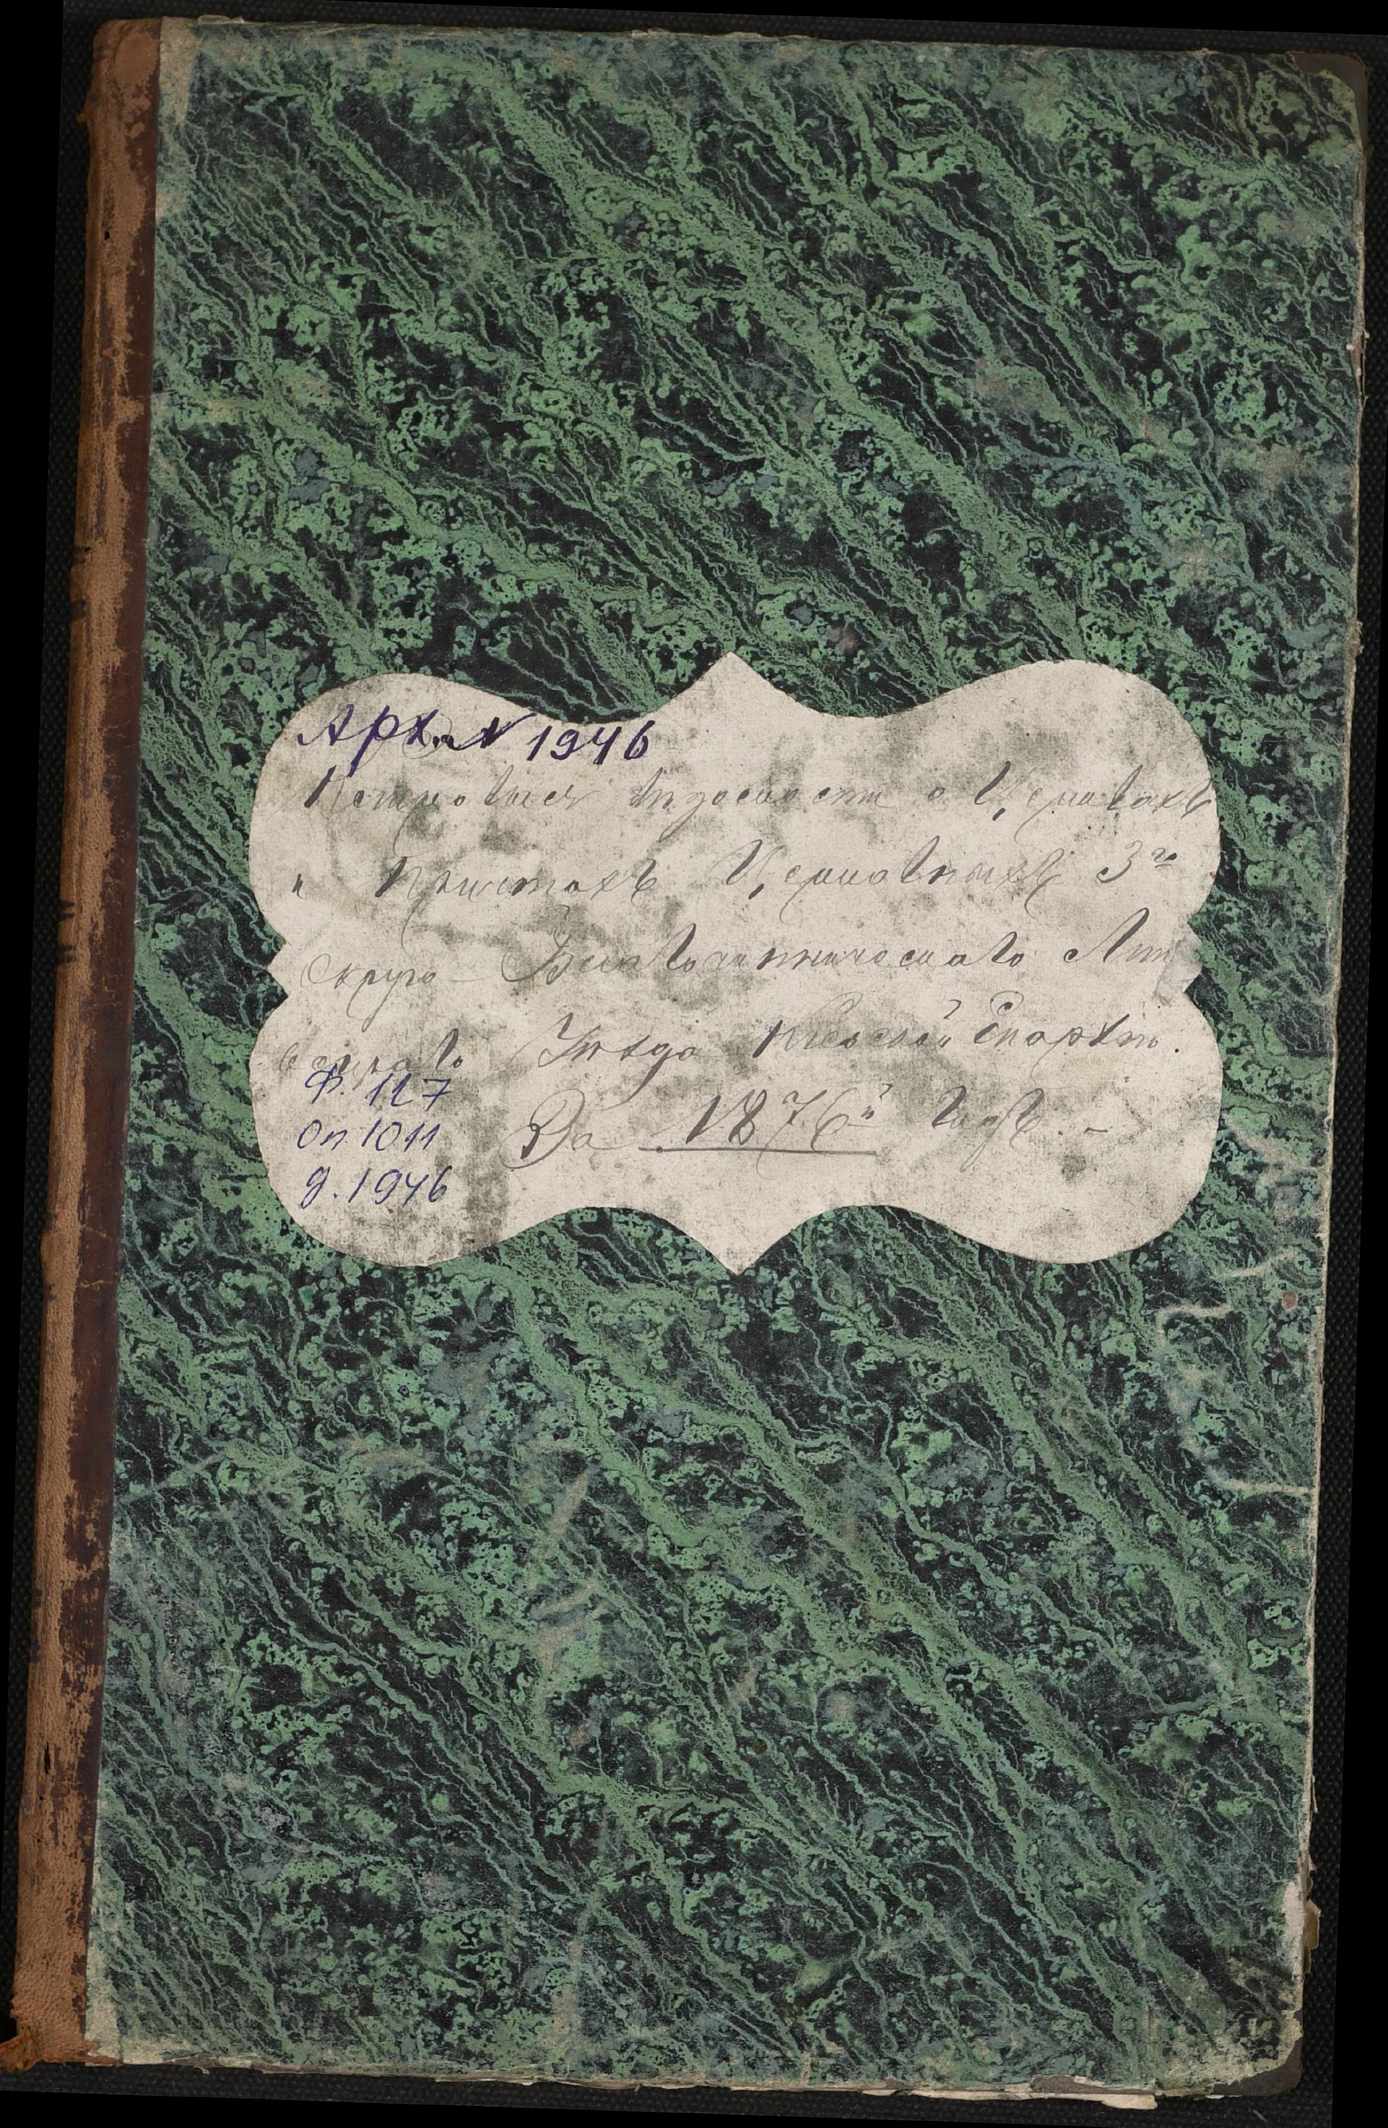 Арх. № 1946
Исповедныя Ведомости о Церквахъ
и Причтахъ Церковныхъ 3го
округа Благочинническаго Лип
Уѣзда Кіевской Епархіи.
Ф. 127
За 1876й Годъ. –
Оп 1011
д. 1946